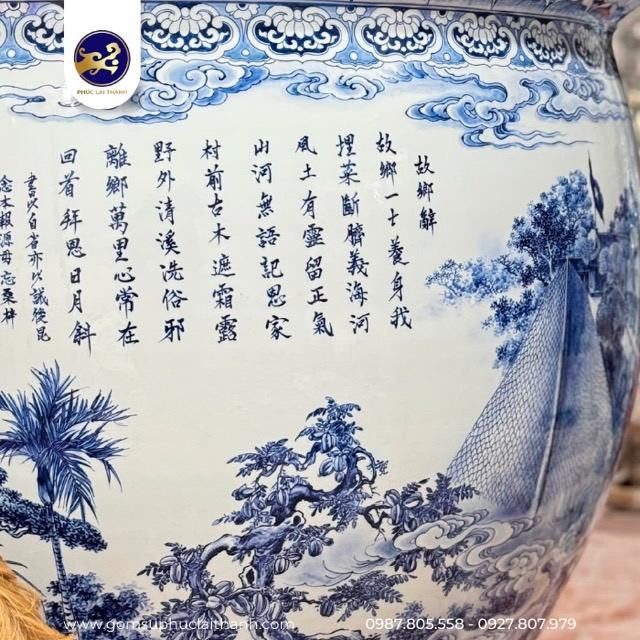 故鄉辭
故鄉一士養身我
埋菜斷臍義海河
風土有靈留正氣
山河無語記恩家
村前古木遮霜露
野外清溪洗俗邪
離鄉萬里心常在
回首拜恩日月斜
書此自省亦以誡後昆
念木根源毋忘桑梓
PHÚC LAI THÀNH
www.gomsuphuclaithanh.com
0987.805.558 - 0927.807.979